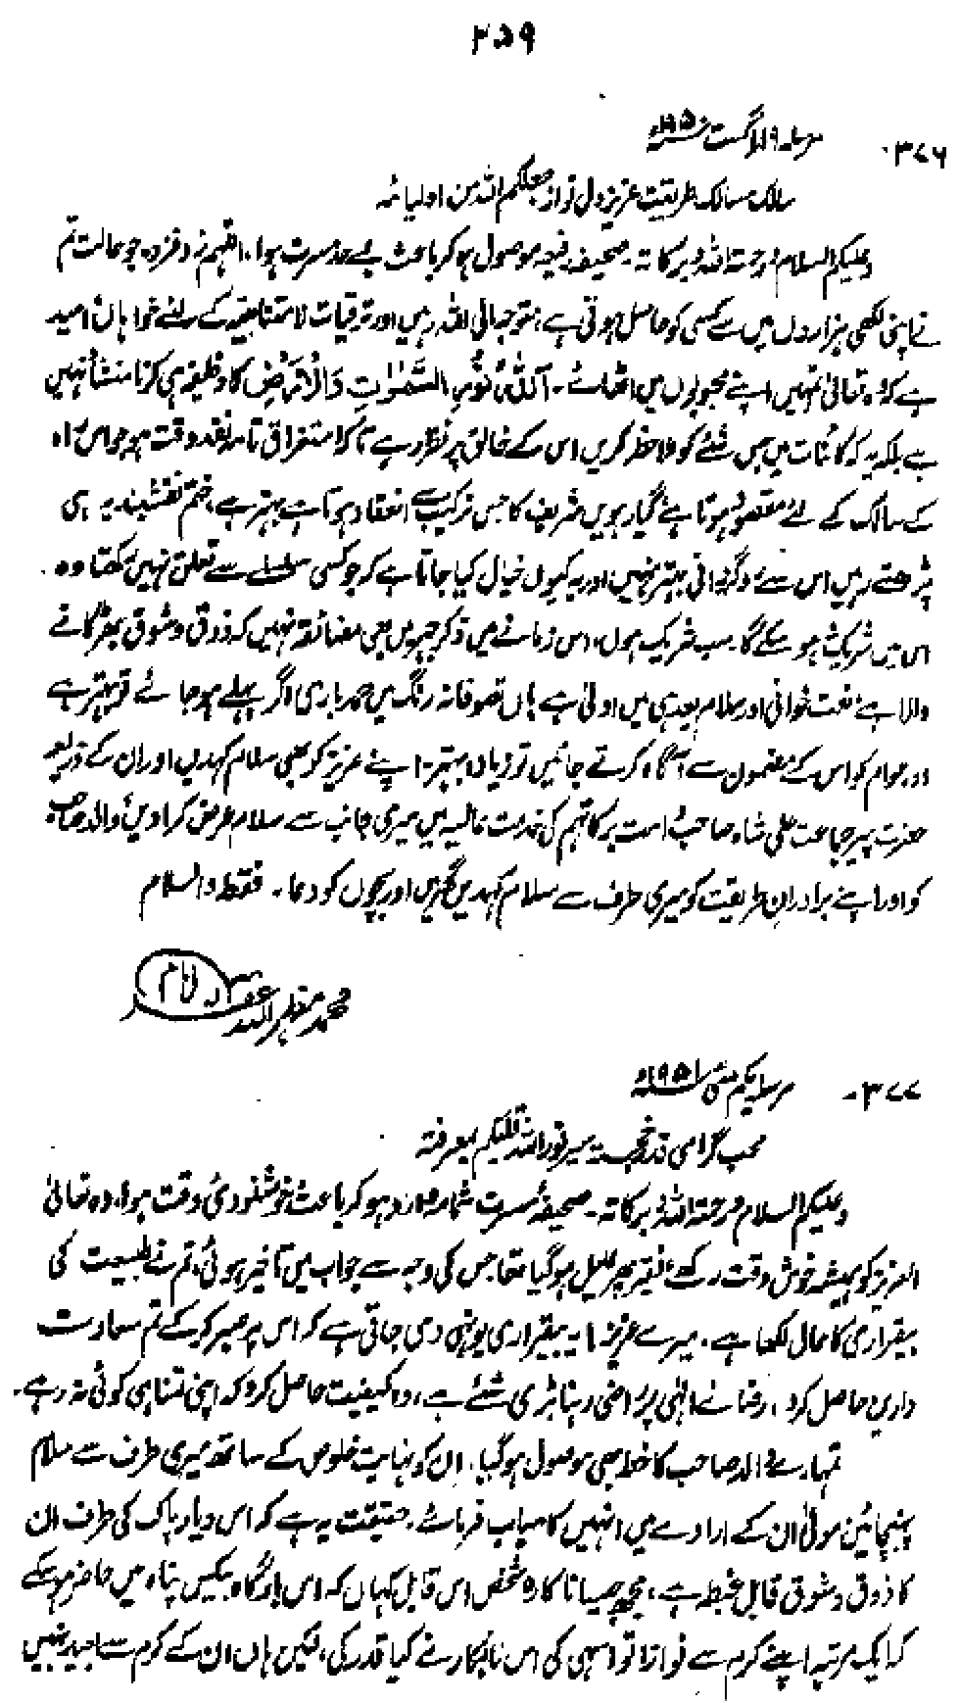 ۲۵۹
۳۷۶۔ مرسلہ ۱۹ اگست ۱۹۵۰ء
سالک مسالک طریقت عزیز دل نواز جعلکم اللہ من اولیائہ
وعلیکم السلام ورحمتہ اللہ وبرکاتہ۔ صحیفہ رفیعہ موصول ہوکر باعث بے حد مسرت ہوا، اللہم زد فزد، جو حالت تم
نے اپنی لکھی ہزاروں میں سے کسی کو حاصل ہوتی ہے، متوجہ الی اللہ رہیں اور ترقیات لامتناہیہ کے لئے خواہاں، امید
ہے کہ وہ تعالیٰ تمہیں اپنے محبوبوں میں اٹھائے۔ اَللّٰہُ نُوْرُ السَّمٰوٰتِ وَالْاَرْضِ کا وظیفہ ہی کرنا منشأ نہیں
ہے بلکہ یہ کہ کائنات میں جس شئے کو ملاحظہ کریں اس کے خالق پر نظر رہے تاکہ استغراق تامہ نقد وقت ہو جو اس راہ
کے سالک کے لئے مقصود ہوتا ہے گیارہویں شریف کا جس ترکیب سے انعقاد ہوتا ہے بہتر ہے، ختم نقشبندیہ ہی
پڑھتے رہیں اس سے روگردانی بہتر نہیں اور یہ کیوں خیال کیا جاتا ہے کہ جو کسی سلسلے سے تعلق نہیں رکھتا وہ
اس میں شریک ہو سکے گا۔ سب شریک ہوں، اس زمانے میں ذکر جہر میں بھی مضائقہ نہیں کہ ذوق و شوق بھڑکانے
والا ہے نعت خوانی اور سلام بعد ہی میں اولیٰ ہے ہاں تصوفانہ رنگ میں حمد باری اگر پہلے ہو جائے تو بہتر ہے
اور عوام کو اس کے مضمون سے آگاہ کرتے جائیں تو زیادہ بہتر۔ اپنے عزیز کو بھی سلام کہدیں اور ان کے ذریعہ
حضرت پیر جماعت علی شاہ صاحب دامت برکاتہم کی خدمت عالیہ میں میری جانب سے سلام عرض کرا دیں، والد صاحب
کو اور اپنے برادران طریقت کو میری طرف سے سلام کہدیں گھر میں اور بچوں کو دعا۔ فقط والسلام
محمد مظہر اللہ غفرلہ امام
۳۷۷۔ مرسلہ یکم مئی ۱۹۵۱ء
محب گرامی قدر خجستہ سیر نور اللہ قلبکم بمعرفتہ
وعلیکم السلام ورحمتہ اللہ وبرکاتہ۔ صحیفہ مسرت شمامہ وارد ہوکر باعث خوشنودی وقت ہوا، وہ تعالیٰ
العزیز کو ہمیشہ خوش وقت رکھے، فقیر پھر علیل ہو گیا تھا جس کی وجہ سے جواب میں تاخیر ہوئی، تم نے طبیعت کی
بیقراری کا حال لکھا ہے، میرے عزیز! یہ بیقراری یونہی دی جاتی ہے کہ اس پر صبر کرکے تم سعادت
دارین حاصل کرو، رضائے الٰہی پر راضی رہنا بڑی شئے ہے، وہ کیفیت حاصل کرو کہ اپنی تمنا ہی کوئی نہ رہے۔
تمہارے والد صاحب کا خط بھی موصول ہو گیا، ان کو نہایت خلوص کے ساتھ میری طرف سے سلام
پہنچائیں مولیٰ ان کے ارادے میں انہیں کامیاب فرمائے، حقیقت یہ ہے کہ اس دیار پاک کی طرف ان
کا ذوق و شوق قابل غبطہ ہے، مجھ جیسا ناکارہ شخص اس قابل کہاں کہ اس بارگاہ بیکس پناہ میں حاضر ہو سکے
کہ ایک مرتبہ اپنے کرم سے نوازا تو اسی کی اس نابکار نے کیا قدر کی، لیکن ہاں ان کے کرم سے بعید نہیں